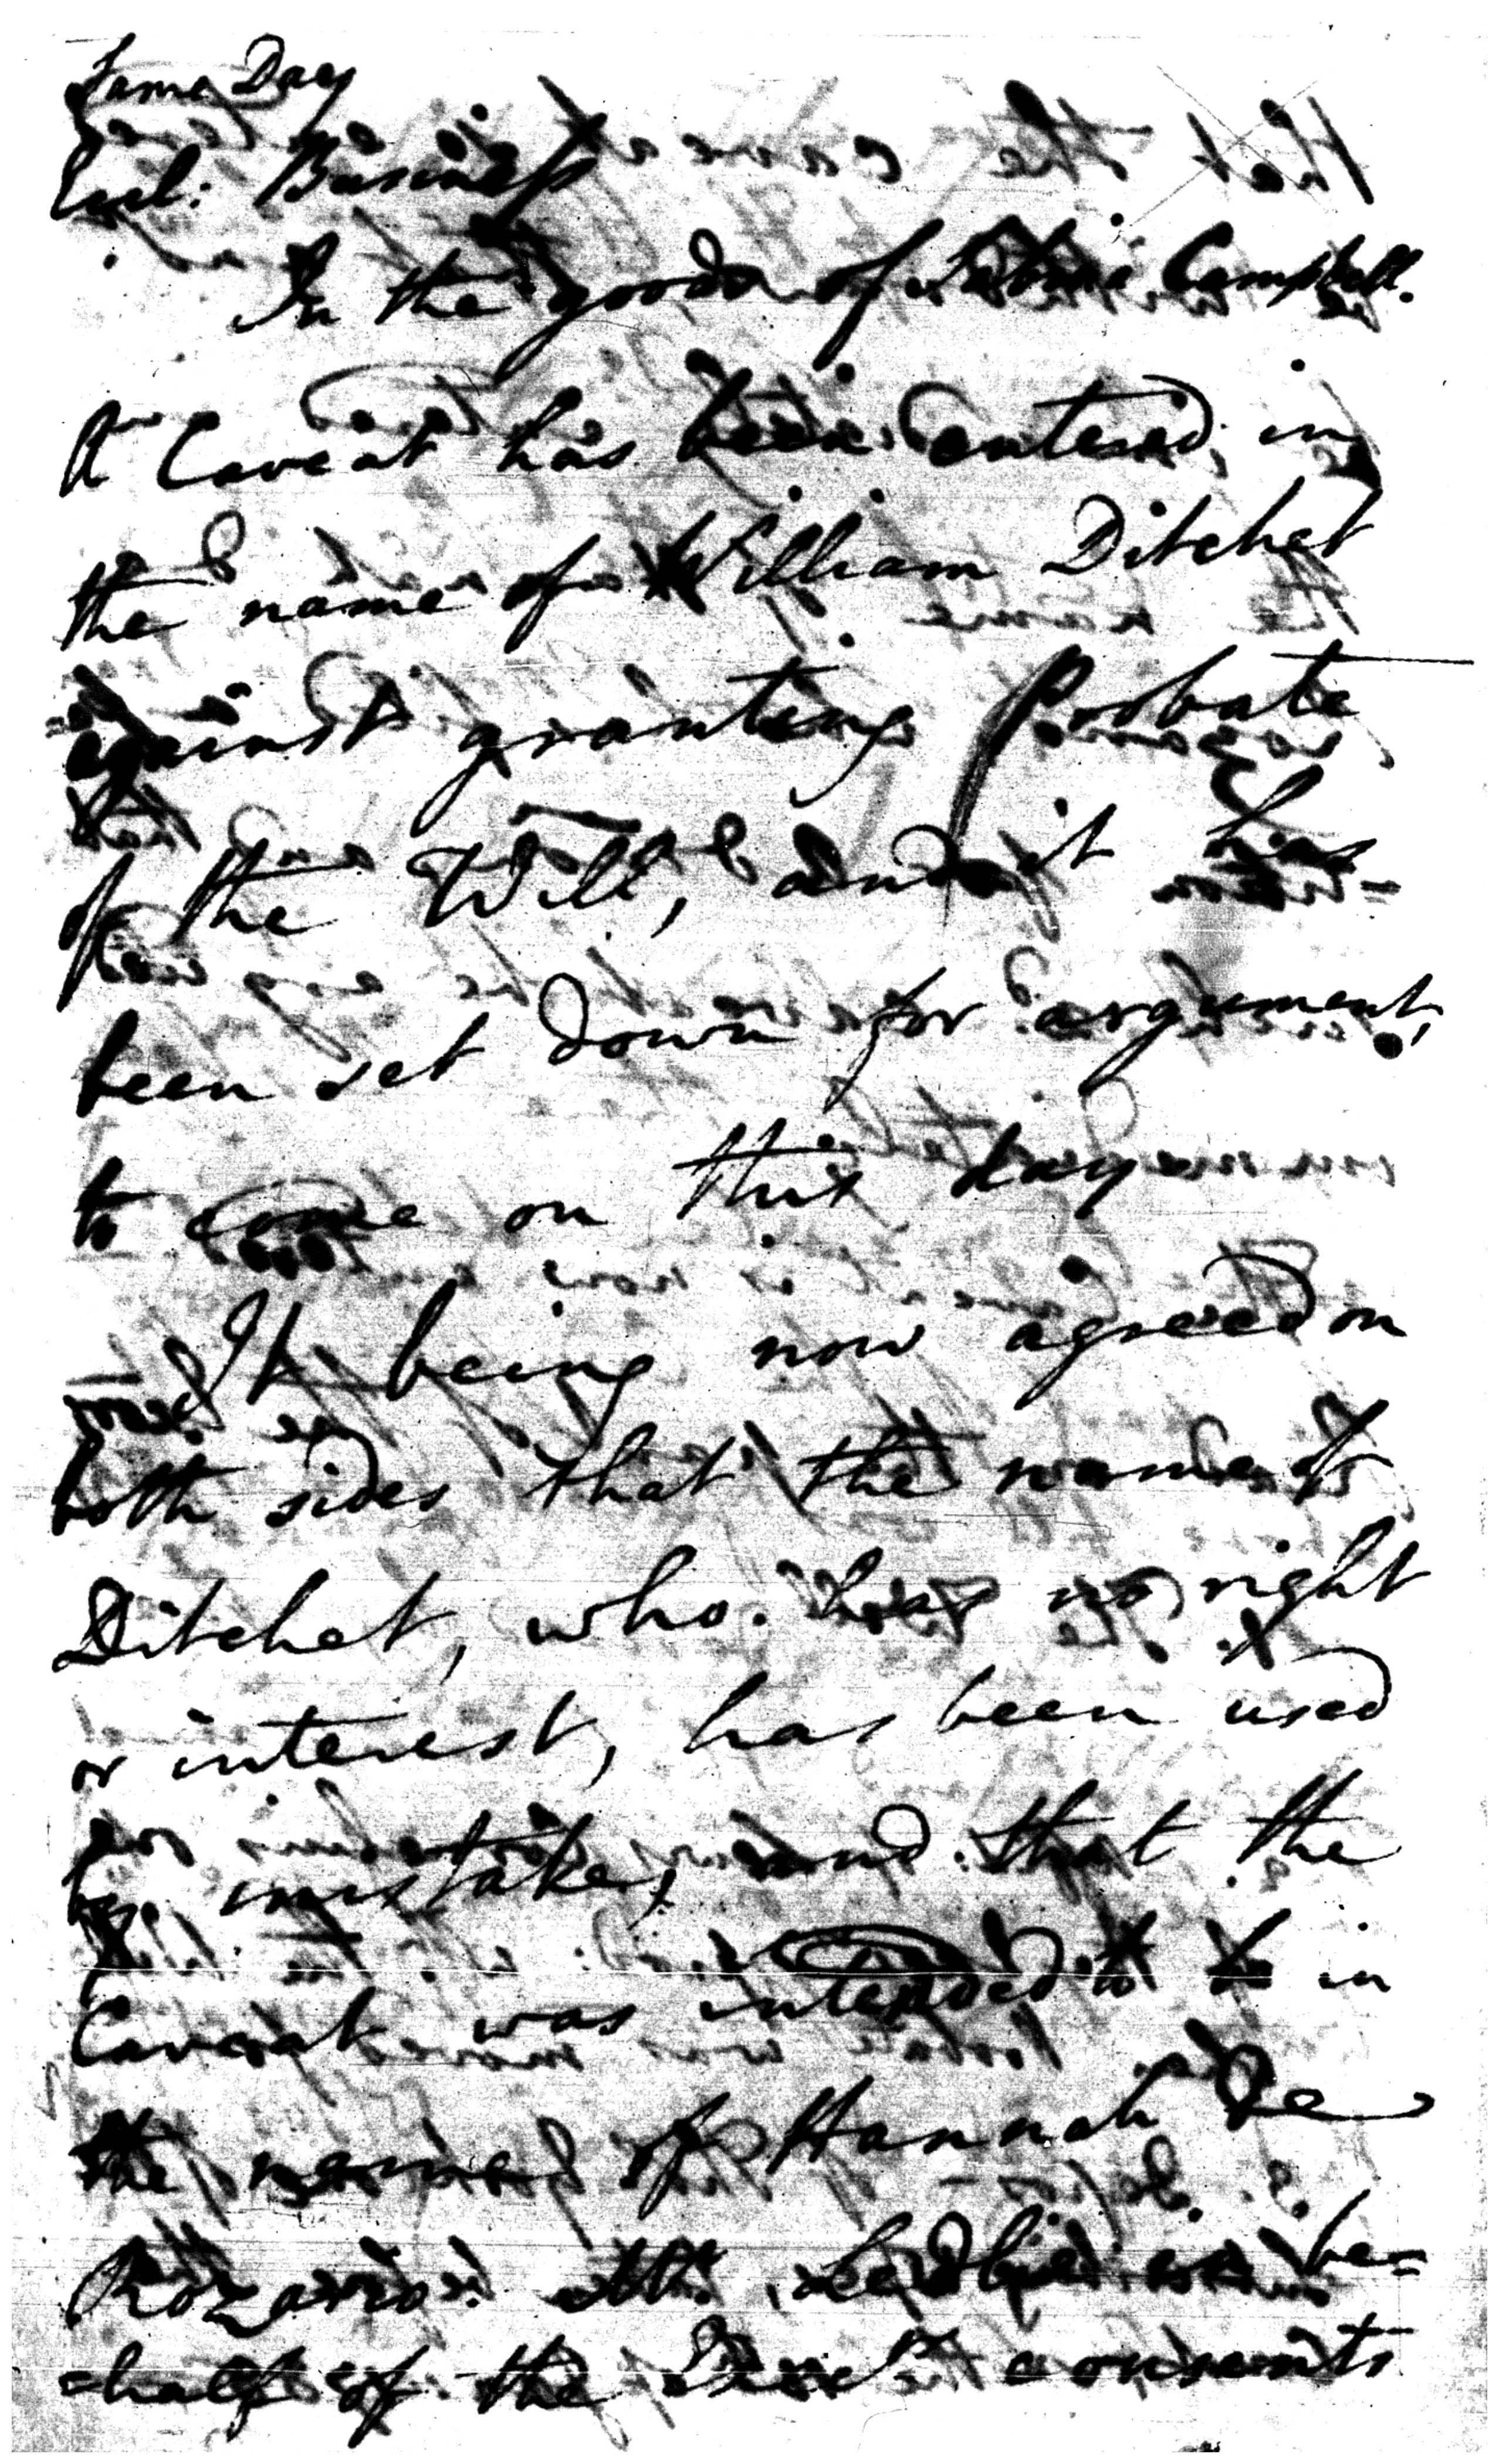 Same Day
Eccl: Business
In the goods of Campbell.
A Caveat has been entered, in
the name of William Ditchet
against granting Probate
of the Will, and it has
been set down for argument,
to come on this day
It being now agreed on
both sides that the name of
Ditchet, who has no right
or interest, has been used
by mistake, and that the
Caveat was intended to be in
the name of Hannah De
Rozario. Mr. on be=
=half of the Exor. consents